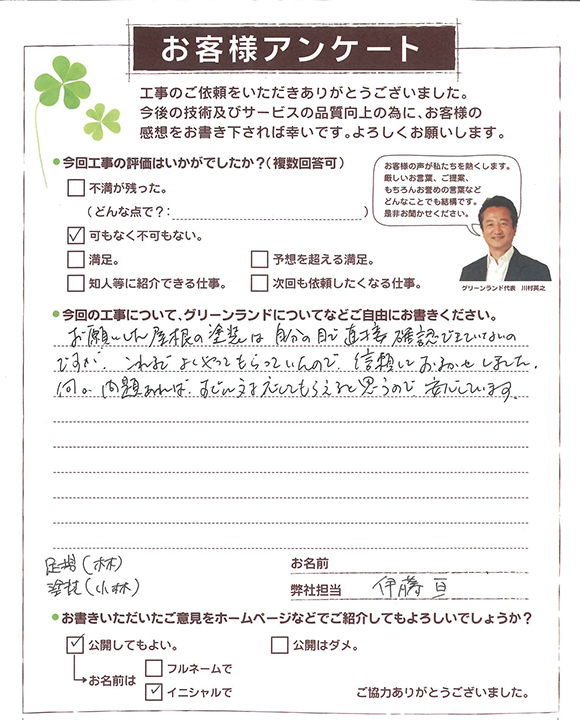 お客様アンケート
工事のご依頼をいただきありがとうございました。
今後の技術及びサービスの品質向上の為に、お客様の
感想をお書き下されば幸いです。よろしくお願いします。
●今回工事の評価はいかがでしたか？(複数回答可)
□不満が残った。
(どんな点で？: )
☑可もなく不可もない。
□満足。 □予想を超える満足。
□知人等に紹介できる仕事。 □次回も依頼したくなる仕事。
お客様の声が私たちを熱くします。
厳しいお言葉、ご提案、
もちろんお誉めの言葉など
どんなことでも結構です。
是非お聞かせください。
グリーンランド代表 川村英之
●今回の工事について、グリーンランドについてなどご自由にお書きください。
お願いした屋根の塗装は自分の目で直接確認できていないの
ですが、これまでよくやってもらっていたので、信頼しておまかせしました。
何か問題あれば、すぐに対応してもらえると思うので安心しています。
足場(林)
塗装(小林)
お名前
弊社担当 伊藤 亘
●お書きいただいたご意見をホームページなどでご紹介してもよろしいでしょうか？
☑公開してもよい。 □公開はダメ。
お名前は □フルネームで
☑イニシャルで
ご協力ありがとうございました。